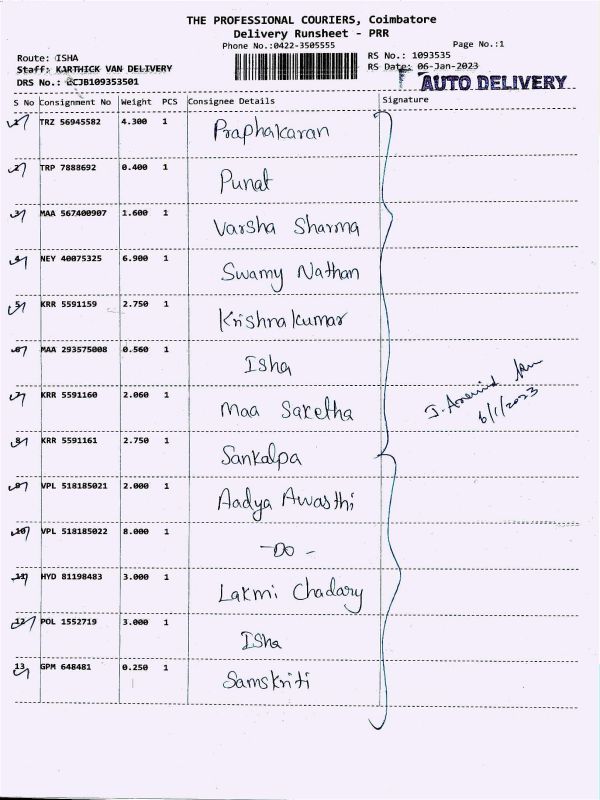 THE PROFESSIONAL COURIERS, Coimbatore
Delivery Runsheet - PRR
Phone No.:0422-3505555
Page No.:1
Route: ISHA
RS No.: 1093535
Staff: KARTHICK VAN DELIVERY
RS Date: 06-Jan-2023
DRS No.: CJB109353501
AUTO DELIVERY
S No Consignment No Weight PCS Consignee Details Signature
1 TRZ 56945582 4.300 1 Praphakaran
2 TRP 7888692 0.400 1 Punat
3 MAA 567400907 1.600 1 Varsha Sharma
4 NEY 40075325 6.900 1 Swamy Nathan
5 KRR 5591159 2.750 1 Krishnakumar
6 MAA 293575008 0.560 1 Isha
7 KRR 5591160 2.060 1 Maa Saketha
8 KRR 5591161 2.750 1 Sankalpa
9 VPL 518185021 2.000 1 Aadya Awasthi
10 VPL 518185022 8.000 1 -Do-
11 HYD 81198483 3.000 1 Lakmi Chadary
12 POL 1552719 3.000 1 Isha
13 GPM 648481 0.250 1 Samskriti
6/1/2023